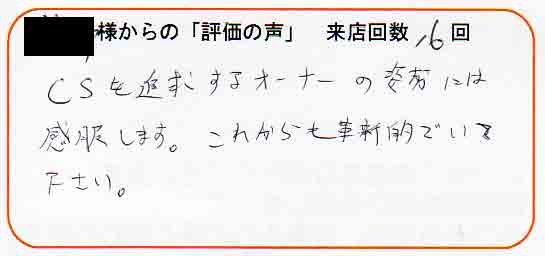 様からの「評価の声」 来店回数 16 回
CSを追求するオーナーの姿勢には
感服します。これからも革新的でいて
下さい。